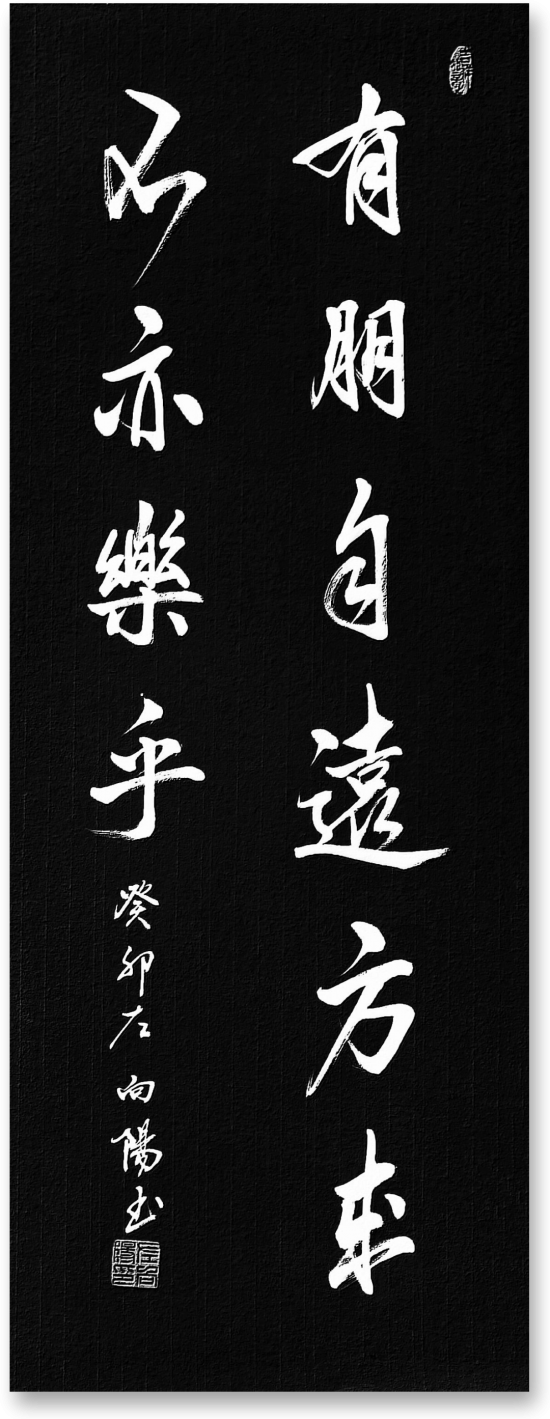 有朋自遠方来
不亦樂乎
癸卯左向陽书